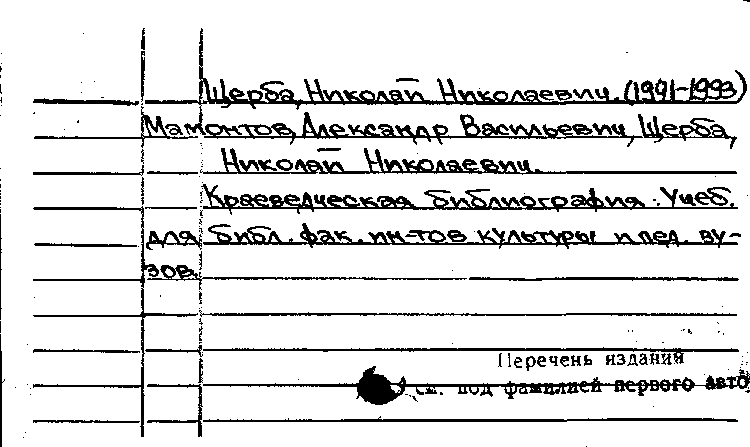 Щерба, Николай Николаевич. (1991-1993)
Мамонтов, Александр Васильевич, Щерба,
Николай Николаевич.
Краеведческая библиография: Учеб.
для библ. фак. ин-тов культуры и пед. ву-
зов.
Перечень изданий
см. под фамилией первого авто